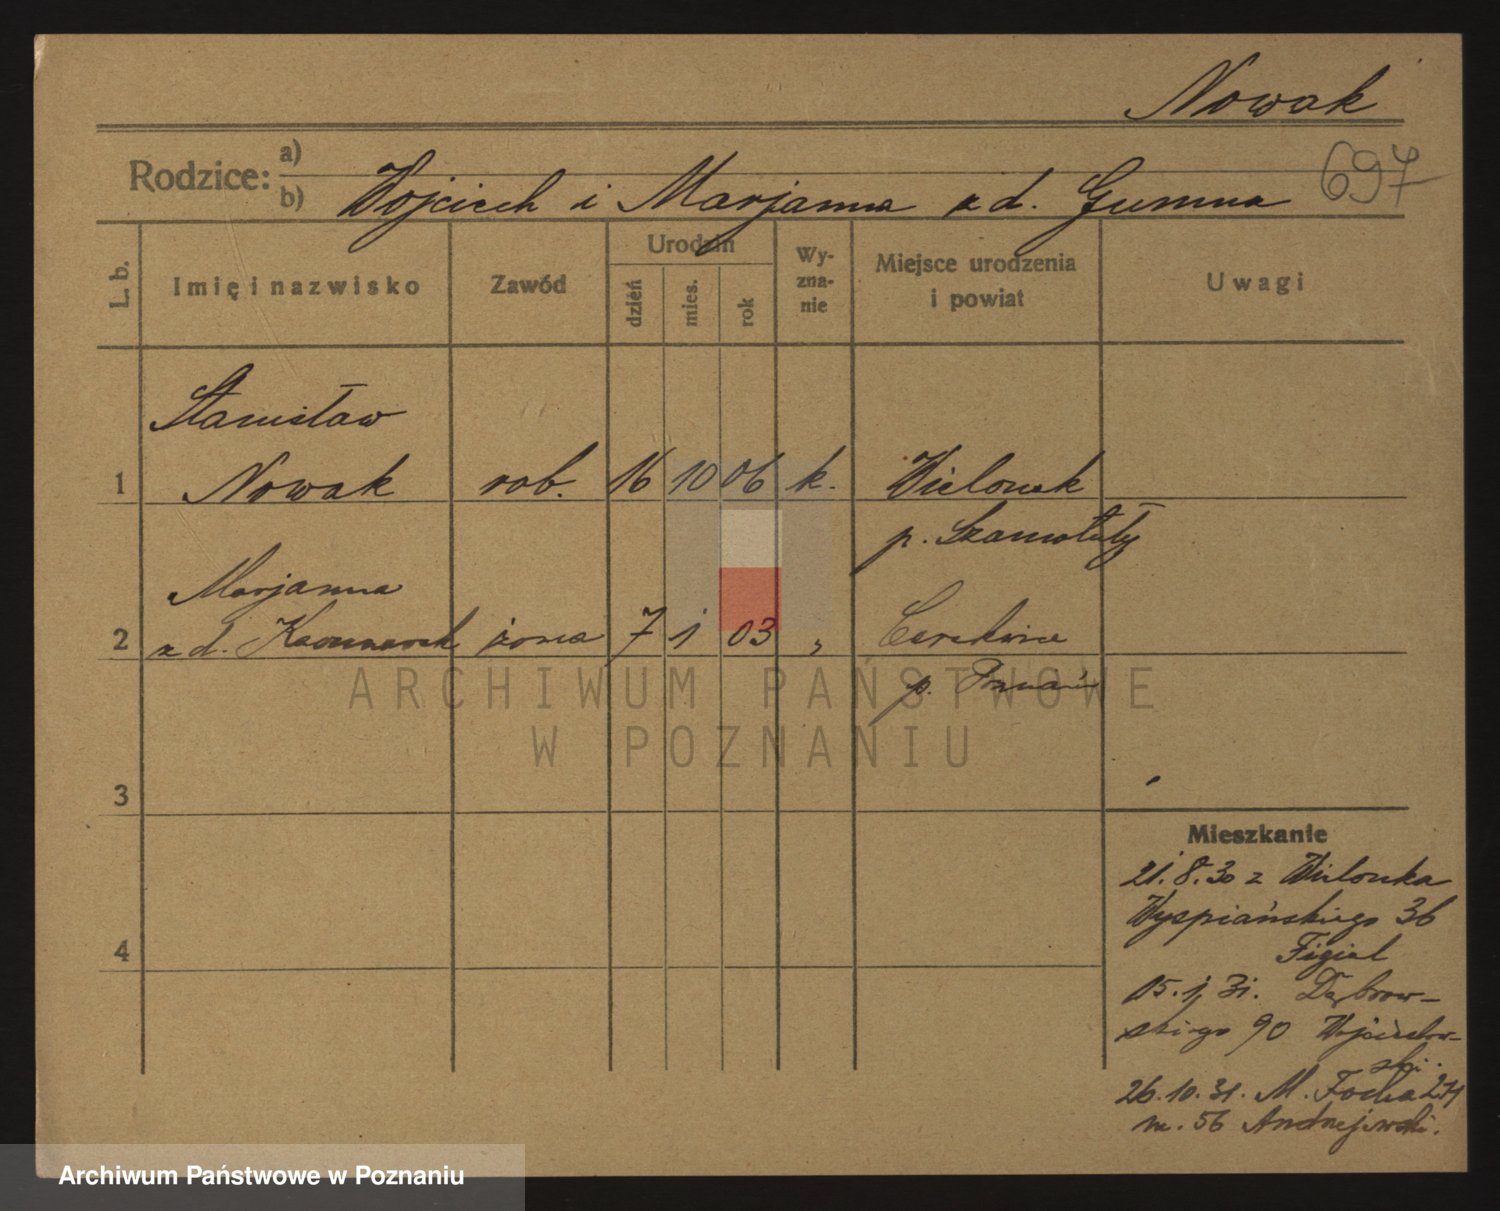 Nowak
697
Rodzice: a)
b) Wojciech i Marjanna z d. Gumna
L. b.
Imię i nazwisko
Zawód
Urodzin
dzień
mies.
rok
Wy-
zna-
nie
Miejsce urodzenia
i powiat
Uwagi
Stanisław
1 Nowak rob. 16 10 06 k. Wielonek
p. Szamotuły
Marjanna
2 z d. Kaczmarek żona 7 1 03 „ Cerekwica
p. Poznań
3
4
Mieszkanie
21.8.30 z Wielonka
Wyspiańskiego 36
Figiel
15.1.31. Dąbrow-
skiego 90 Wojciechow-
ski.
26.10.31. M. Focha
m. 56 Andrzejewski.
ARCHIWUM PAŃSTWOWE
W POZNANIU
Archiwum Państwowe w Poznaniu